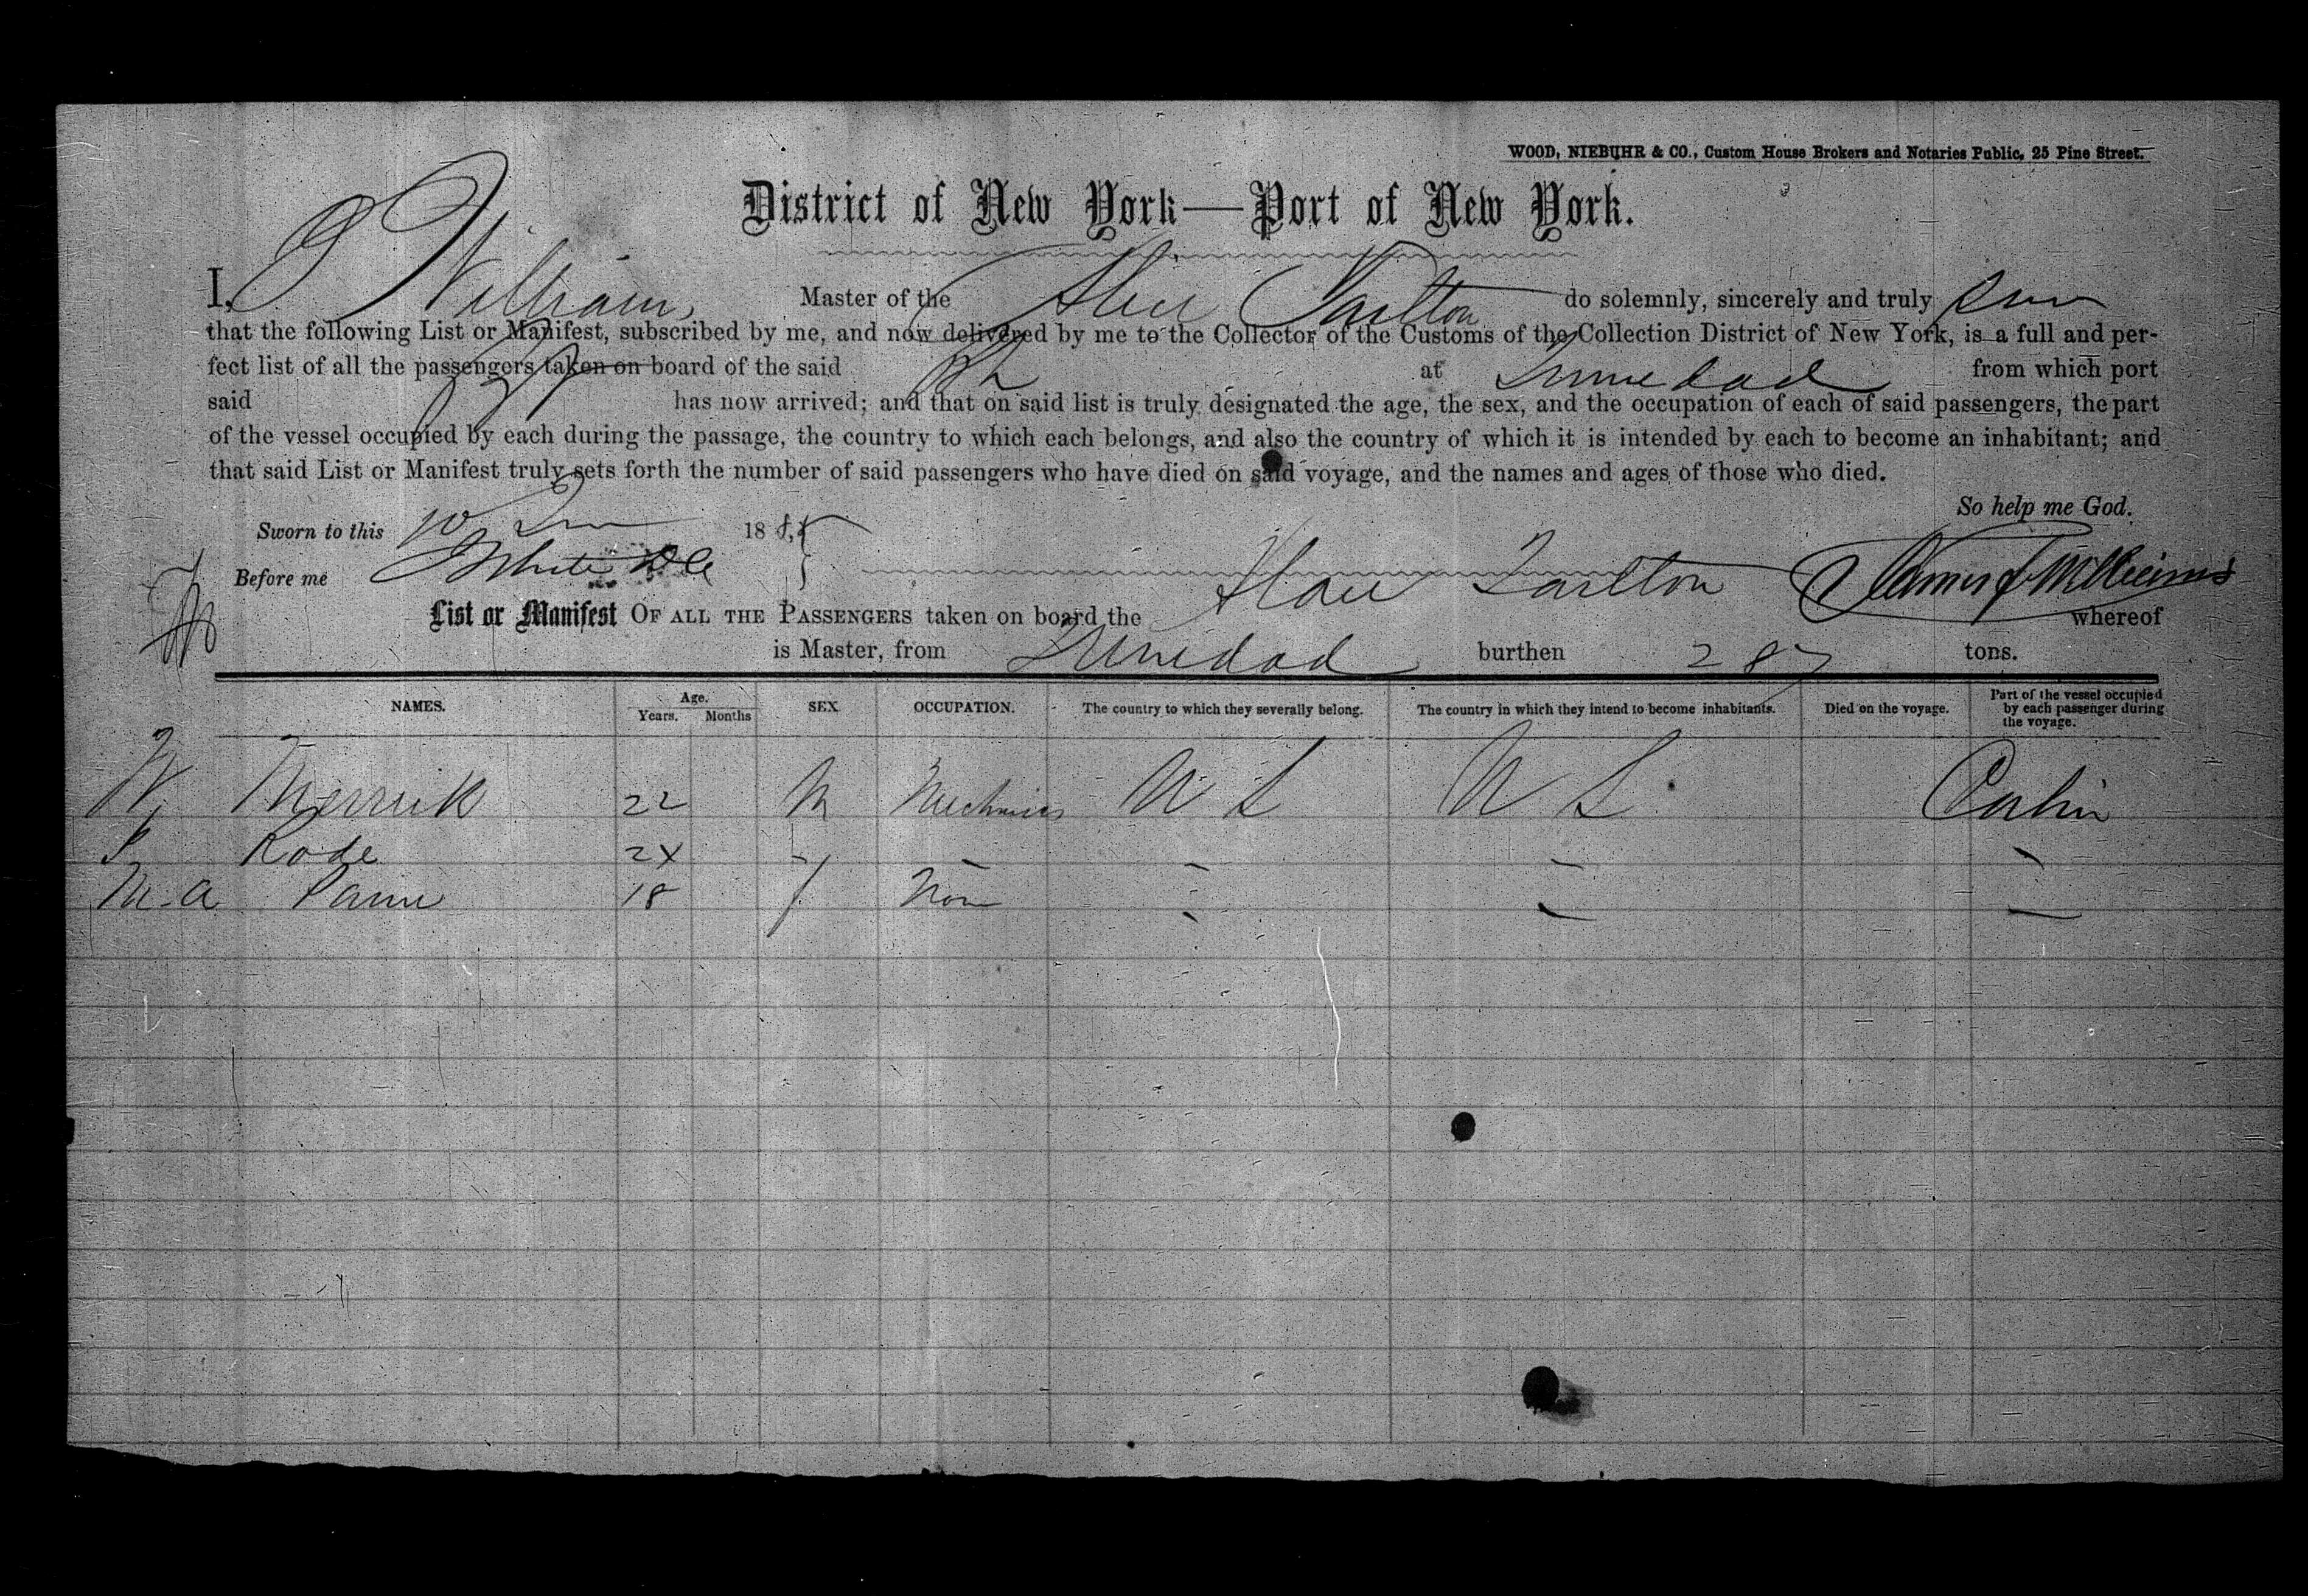 WOOD, NIEBUHR & CO., Custom House Brokers and Notaries Public, 25 Pine Street.
District of New York—Port of New York.
I, J Williams, Master of the Tarlton do solemnly, sincerely and truly
that the following List or Manifest, subscribed by me, and now delivered by me to the Collector of the Customs of the Collection District of New York, is a full and per-
fect list of all the passengers taken on board of the said at Trinedad from which port
said has now arrived; and that on said list is truly designated the age, the sex, and the occupation of each of said passengers, the part
of the vessel occupied by each during the passage, the country to which each belongs, and also the country of which it is intended by each to become an inhabitant; and
that said List or Manifest truly sets forth the number of said passengers who have died on said voyage, and the names and ages of those who died.
So help me God.
Sworn to this 10 18
Before me
List or Manifest OF ALL THE PASSENGERS taken on board the Tarlton James Williams whereof
is Master, from Trinedad burthen 287 tons.
NAMES. Age. Years. Months SEX OCCUPATION. The country to which they severally belong. The country in which they intend to become inhabitants. Died on the voyage. Part of the vessel occupied by each passenger during the voyage.
W Merrick 22 M Mechanics Cabin
Rode 24 "
M. A 18 f None